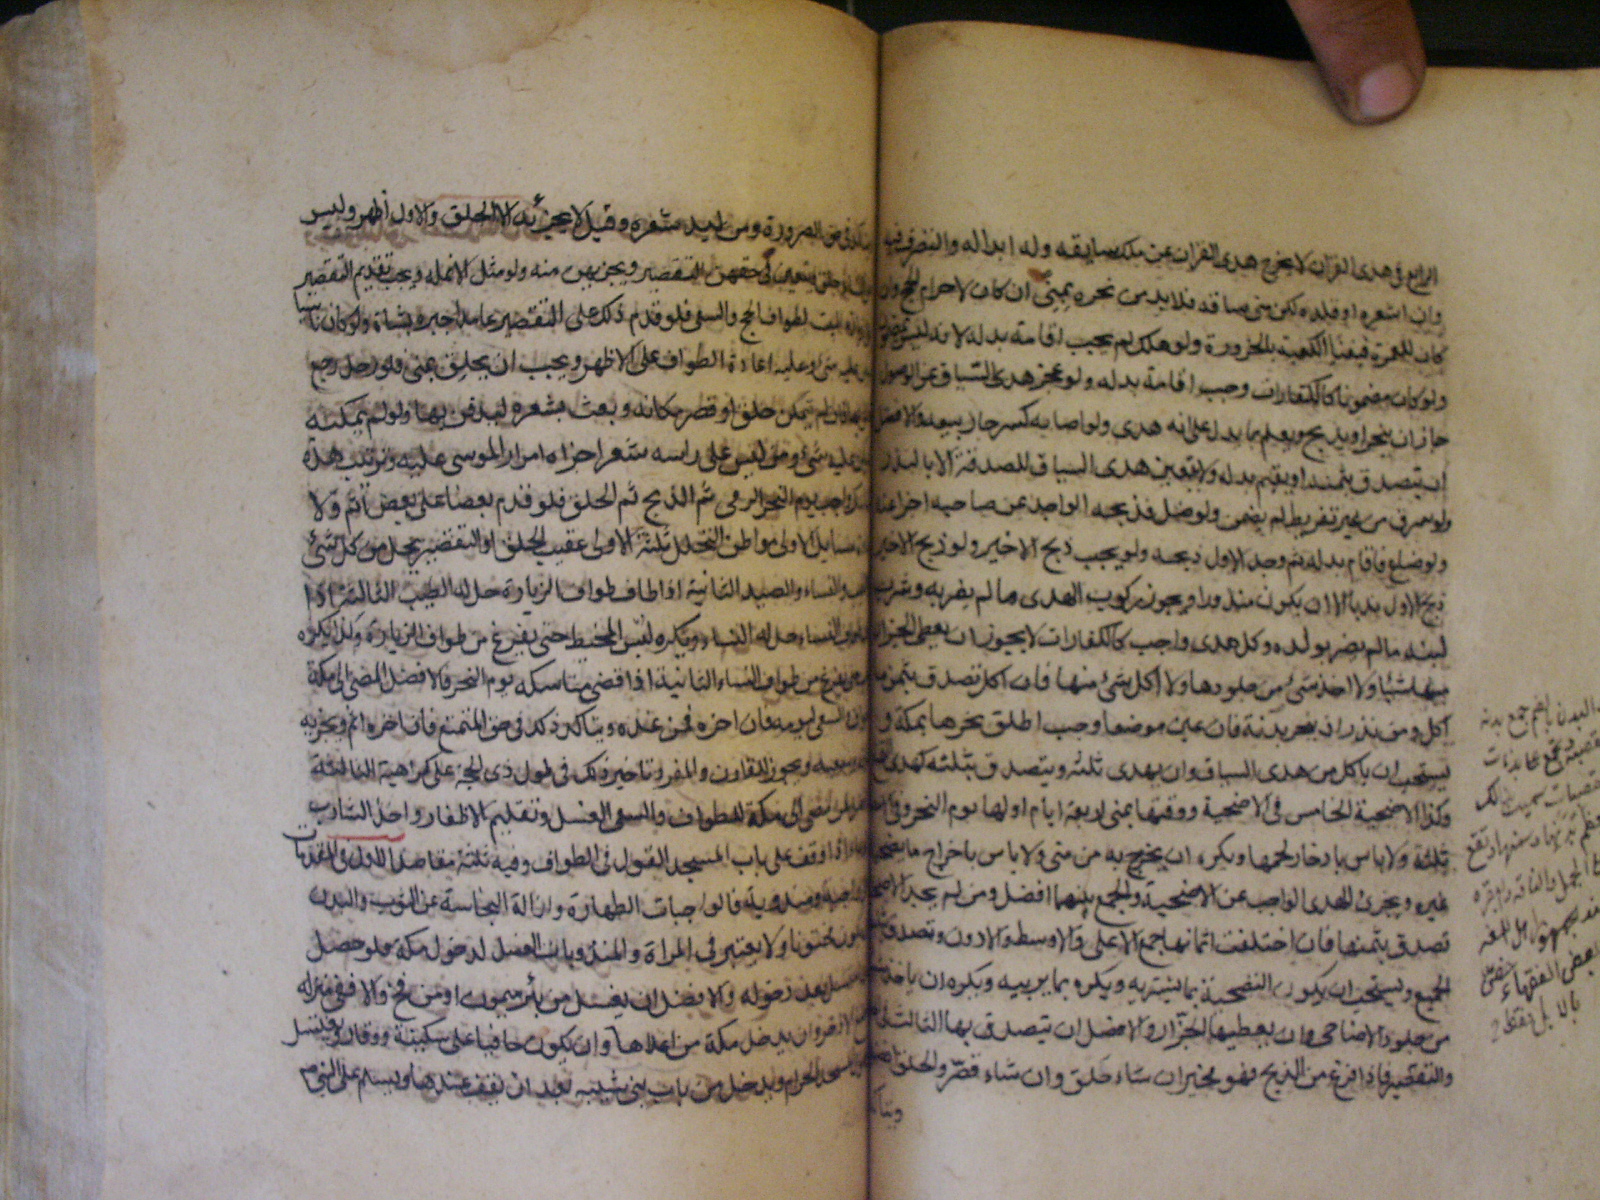 الرابع في هدى القران لا يخرج هدى القران عن ملك سايقه وله ابداله والتصرف فيه
وان اشعره او قلده لكن متى ساقه فلا بد من نحره بمنى ان كان لاحرام الحج وان
كان للعمرة فبفناء الكعبة بالحزورة ولو هلك لم يجب اقامة بدله لانه ليس بمضمون
ولو كان مضمونا كالكفارات وجب اقامة بدله ولو عجز هدى السياق عن الوصول
جاز ان ينحر او يذبح ويعلم بما يدل على انه هدى ولو اصابه كسر جاز بيعه والافضل
ان يتصدق بثمنه او يقيم بدله ولا يتعين هدى السياق للصدقة الا بالنذر
ولو سرق من غير تفريط لم يضمن ولو ضل فذبحه الواجد عن صاحبه اجزا عنه
ولو ضاع فاقام بدله ثم وجد الاول ذبحه ولم يجب ذبح الاخير ولو ذبح الاخير
ذبح الاول ندبا الا ان يكون منذورا ويجوز ركوب الهدى ما لم يضر به وشرب
لبنه ما لم يضر بولده وكل هدى واجب كالكفارات لا يجوز ان يعطى الجزار
منها شيئا ولا اخذ شئ من جلودها ولا اكل شئ منها فان اكل تصدق بثمن ما
اكل ومن نذر ان ينحر بدنة فان عين موضعا وجب وان اطلق نحرها بمكة و
يستحب ان ياكل من هدى السياق وان يهدى ثلثه ويتصدق بثلثه كهدى التمتع
وكذا الاضحية الخامس في الاضحية ووقتها بمنى اربعة ايام اولها يوم النحر وفي الامصار
ثلثة ولا باس بادخار لحمها ويكره ان يخرج به من منى ولا باس باخراج ما يضحيه
غيره ويجزئ الهدى الواجب عن الاضحية والجمع بينهما افضل ومن لم يجد الاضحية
تصدق بثمنها فان اختلفت اثمانها جمع الاعلى والاوسط والادون وتصدق بثلث
الجميع ويستحب ان يكون التضحية بما يشتريه ويكره بما يربيه ويكره ان ياخذ شيئا
من جلود الاضاحي وان يعطيها الجزار والافضل ان يتصدق بها الثالث في الحلق
والتقصير فاذا فرغ من الذبح فهو مخير ان شاء حلق وان شاء قصر والحلق افضل
ويتاكد
البدن بالضم جمع بدنة
يتاكد في حق الصرورة ومن لبد شعره وقيل لا يجزئه الا الحلق والاول اظهر وليس
على النساء حلق ويتعين في حقهن التقصير ويجزيهن منه ولو مثل الانملة ويجب تقديم التقصير
على زيارة البيت لطواف الحج والسعى فلو قدم ذلك على التقصير عامدا جبره بشاة ولو كان ناسيا
لم يكن عليه شئ وعليه اعادة الطواف على الاظهر ويجب ان يحلق بمنى فلو رحل رجع
فحلق بها فان لم يتمكن حلق او قصر مكانه وبعث بشعره ليدفن بها ولو لم يمكنه
لم يكن عليه شئ ومن ليس على راسه شعر اجزاه امرار الموسى عليه وترتيب هذه
المناسك واجب يوم النحر الرمى ثم الذبح ثم الحلق فلو قدم بعضا على بعض اثم ولا
اعادة مسايل الاولى مواطن التحلل ثلثة الاولى عقيب الحلق او التقصير يحل من كل شئ
الا الطيب والنساء والصيد الثانية اذا طاف طواف الزيارة حل له الطيب الثالثة اذا
طاف طواف النساء حل له النساء ويكره لبس المخيط حتى يفرغ من طواف الزيارة وكذا يكره
الطيب حتى يفرغ من طواف النساء الثانية اذا قضى مناسكه يوم النحر فالافضل المضى الى مكة
للطواف والسعى ليومه فان اخره فمن غده ويتاكد ذلك في حق المتمتع فان اخره اثم ويجزيه
طوافه وسعيه ويجوز للقارن والمفرد تاخير ذلك في طول ذى الحجة على كراهية الثالثة
الافضل لمن مضى الى مكة للطواف والسعى الغسل وتقليم الاظفار واخذ الشارب
والدعاء اذا وقف على باب المسجد القول في الطواف وفيه ثلثة مقاصد الاول في المقدمات
وهى واجبة ومندوبة فالواجبات الطهارة وازالة النجاسة عن الثوب والبدن
وان يكون مختونا ولا يعتبر في المراة والمندوبات الغسل لدخول مكة فلو حصل
عذر اغتسل بعد دخوله والافضل ان يغتسل من بئر ميمون او من فخ والا ففي منزله
ومضغ الاذخر وان يدخل مكة من اعلاها وان يكون حافيا على سكينة ووقار ويغتسل
لدخول المسجد الحرام ويدخل من باب بنى شيبة بعد ان يقف عندها ويسلم على النبي